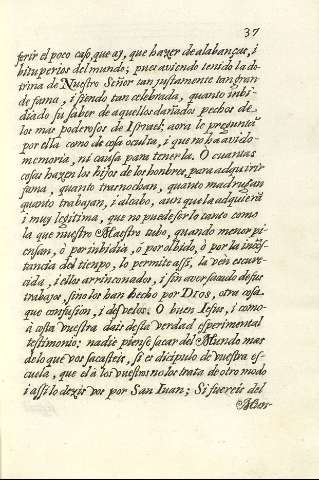 37
ferir el poco caso, que ai, que hazer de alabanças, i
bituperios del mundo; pues aviendo tenido la do-
trina de Nuestro Señor tan justamente tan gran-
de fama, i siendo tan celebrada, quanto inbi-
diado su saber de aquellos dañados pechos de
los mas poderosos de Israel; aora le preguntã
por ella como de cosa oculta, i que no ha avido
memoria, ni causa para tenerla. O cuantas
cosas hazen los hijos de los hombres, para adquirir
fama, quanto trasnochan, quanto madrugan
quanto trabajan, i al cabo, aunque la adquierã
i muy legitima, que no puede serlo tanto como
la que nuestro Maestro tubo, quando menor pi-
ensan, ò por inbidia, ò por olbido, ò por la incõs-
tancia del tiempo, lo permite assi, la vèn escure-
cida, i ellos arrinconados, i sin aver sacado de sus
trabajos, sino los han hecho por Dios, otra cosa
que confusion, i desvelos. O buen Iesus, i como
à costa vuestra dais desta verdad esperimental
testimonio: nadie piense sacar del Mundo mas
de lo que vos sacasteis, si es dicipulo de vuestra es-
cuela, que èl à los vuestros no los trata de otro modo
i assi lo dezis vos por San Iuan; Si fuereis del
Mun-